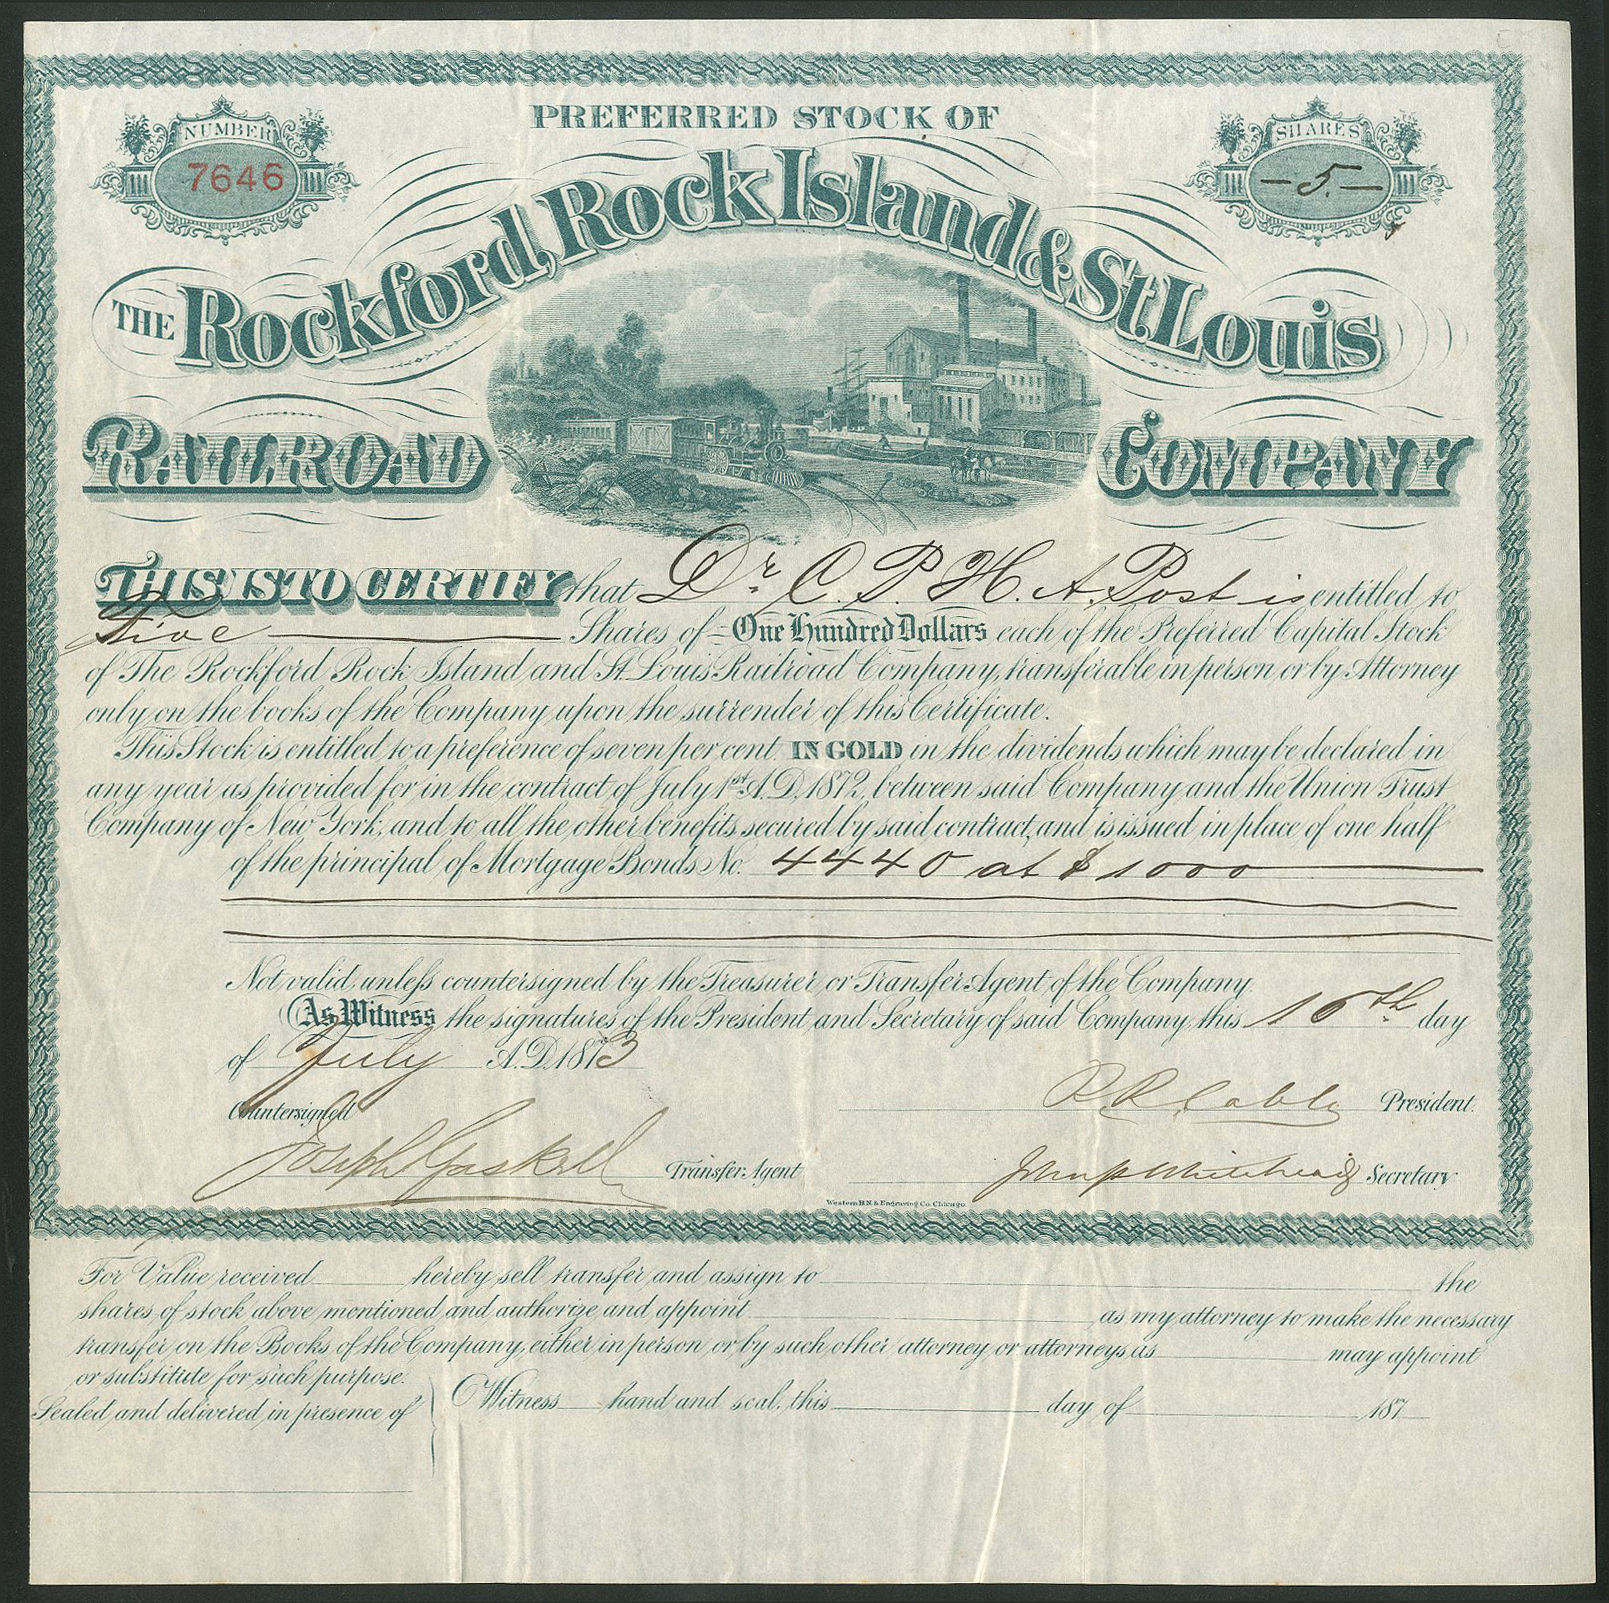 PREFERRED STOCK OF
NUMBER
7646
SHARES
-5.-
THE Rockford, Rock Island & St. Louis
RAILROAD COMPANY
THIS IS TO CERTIFY that Dr. C. P. H. A. Post is entitled to
Five Shares of One Hundred Dollars each of the Preferred Capital Stock
of The Rockford Rock Island and St. Louis Railroad Company, transferable in person or by Attorney
only on the books of the Company upon the surrender of this Certificate.
This Stock is entitled to a preference of seven per cent. IN GOLD in the dividends which may be declared in
any year as provided for in the contract of July 1st A.D. 1872, between said Company and the Union Trust
Company of New York, and to all the other benefits secured by said contract, and is issued in place of one half
of the principal of Mortgage Bonds No. 4440 at $1000
Not valid unless countersigned by the Treasurer or Transfer Agent of the Company.
As Witness the signatures of the President and Secretary of said Company this 10th day
of July A.D. 1873
Countersigned
R R Cable President.
Joseph Gaskell Transfer Agent
John P Whitehead Secretary
Western B.N. & Engraving Co. Chicago
For Value received hereby sell transfer and assign to the
shares of stock above mentioned and authorize and appoint as my attorney to make the necessary
transfer on the Books of the Company, either in person or by such other attorney or attorneys as may appoint
or substitute for such purpose.
Sealed and delivered in presence of
Witness hand and seal, this day of 187